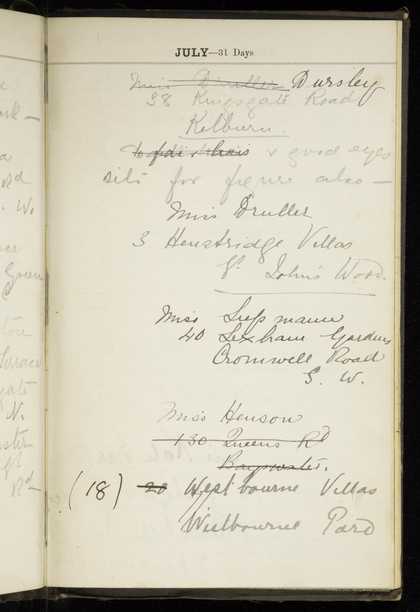 JULY—31 Days
Miss Druller Dursley
38 Kingsgate Road
Kilburn.
hair & good eyes
sits for figure also —
Miss Druller
3 Henstridge Villas
St. John's Wood.
Miss Lupmann
40 Lexham Gardens
Cromwell Road
S. W.
Miss Henson
130 Queens Rd
Bayswater.
(18) 20 Westbourne Villas
Westbourne Pard
W.
N.
Rd —